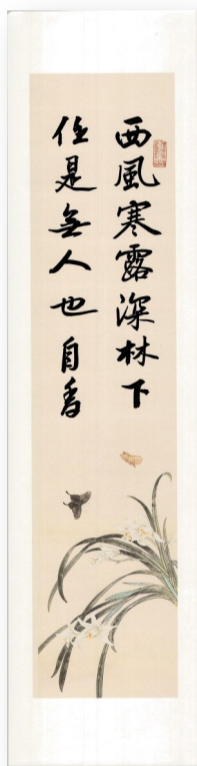 西風寒露深林下
任是無人也自香